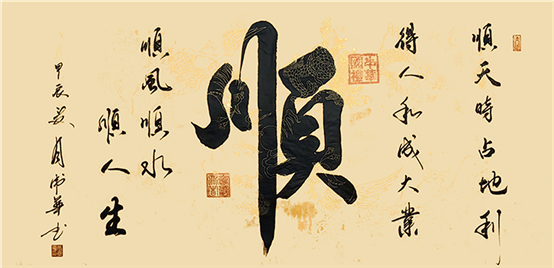 順天時占地利
得人和成大業
順
順風順水
順人生
甲辰